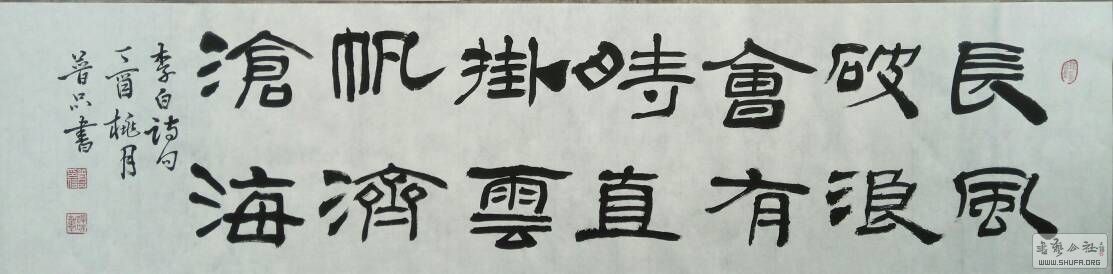 長風
破浪
會有
時直
掛雲
帆濟
滄海
李白詩句
丁酉桃月
普 書
书艺公社
WWW.SHUFA.ORG